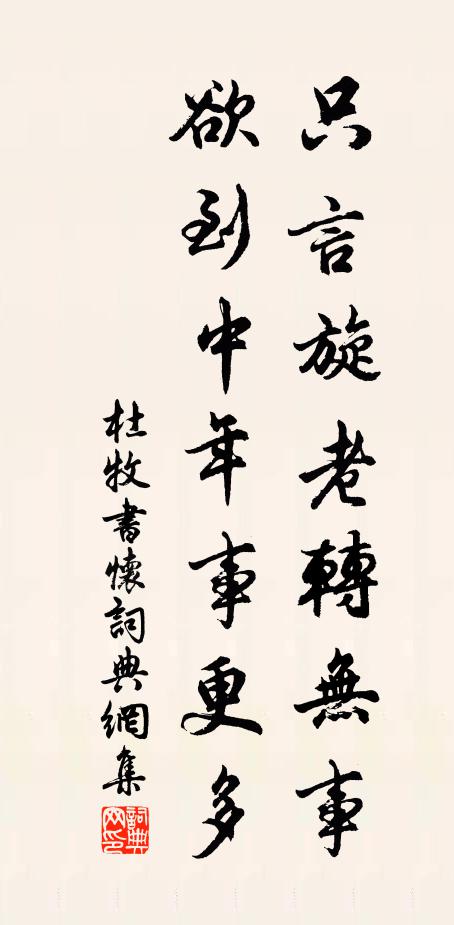 只言旋老轉無事
欲到中年事更多
杜牧書懷詞典網集
詞典網印